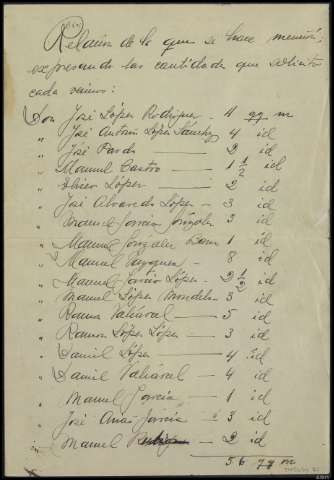 Relación de la que se hace mención,
expresando las cantidades que solicita
cada vecino:
Don José López Rodríguez - 4 qq m
" José Antonio López Sánchez 4 id
" José Pardo — 2 id
" Manuel Castro — 1 1/2 id
" López — 2 id
" José Alvaredo López - 3 id
" Manuel García González 3 id
" Manuel González 1 id
" Manuel - 8 id
" Manuel García López - 2 1/2 id
" Manuel López 3 id
" Ramón — 5 id
" Ramón López López - 3 id
" Daniel López — 4 id
" Daniel — 4 id
" Manuel García — 1 id
" José Arias García 3 id
" Manuel — 2 id
56 qq m